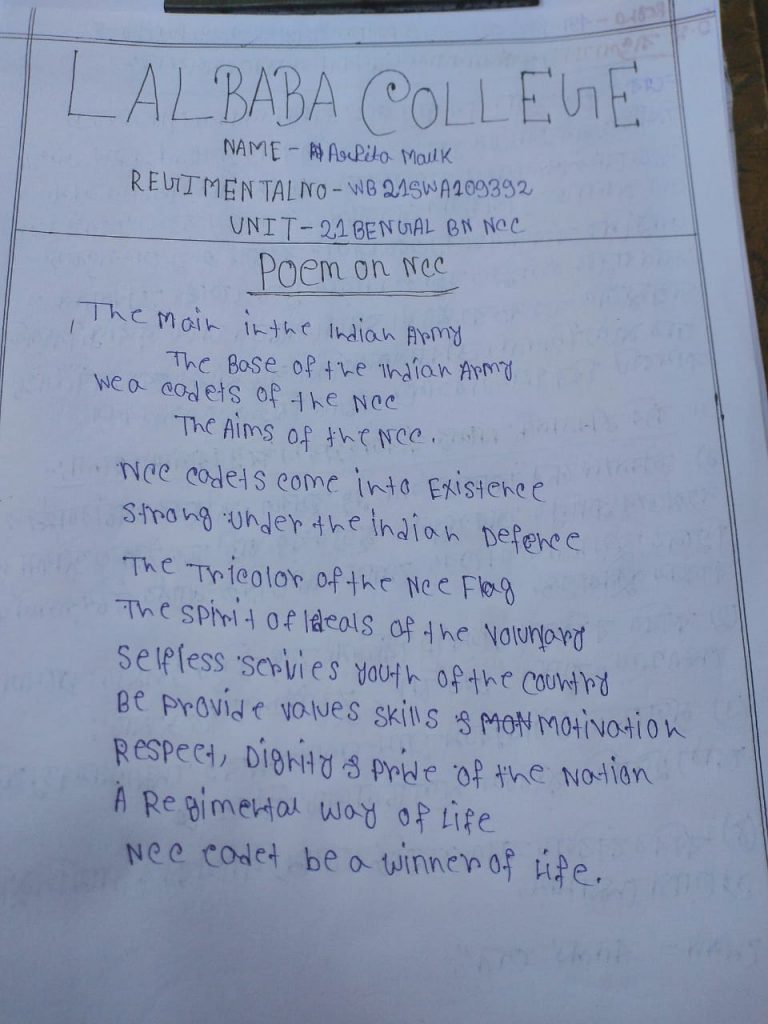 LALBABA COLLEGE
NAME - Arpita Malik
REGIMENTAL NO - WB21SWA109392
UNIT - 21 BENGAL BN NCC
Poem on NCC
The Main in the Indian Army
The Base of the Indian Army
we a cadets of the NCC
The Aims of the NCC.
NCC cadets come into Existence
Strong under the indian Defence
The Tricolor of the NCC Flag
The Spirit of Ideals of the voluntary
Selfless servies youth of the country
Be provide values skills & Motivation
Respect, Dignity & pride of the Nation
A Regimental way of Life
NCC cadet be a winner of Life.